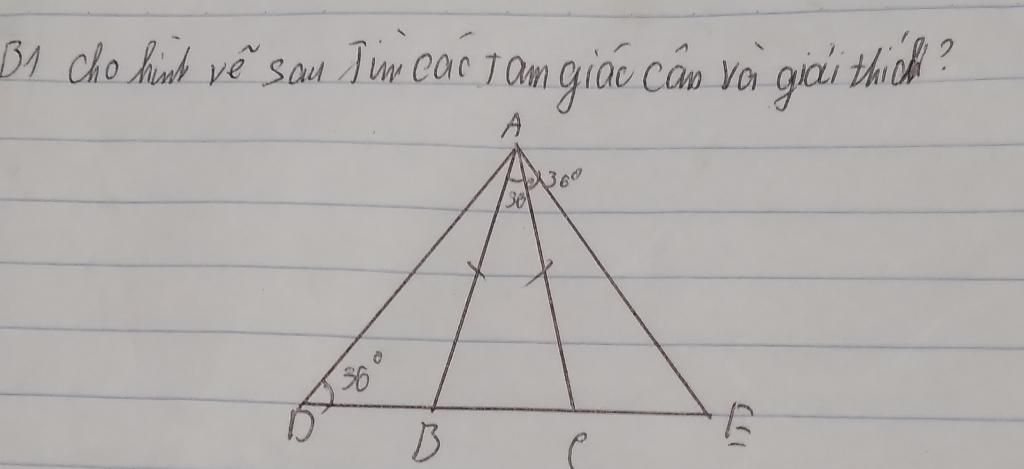 B1 Cho hình vẽ sau Tìm các tam giác cân và giải thích?
A
36°
36
36°
D
B
C
E